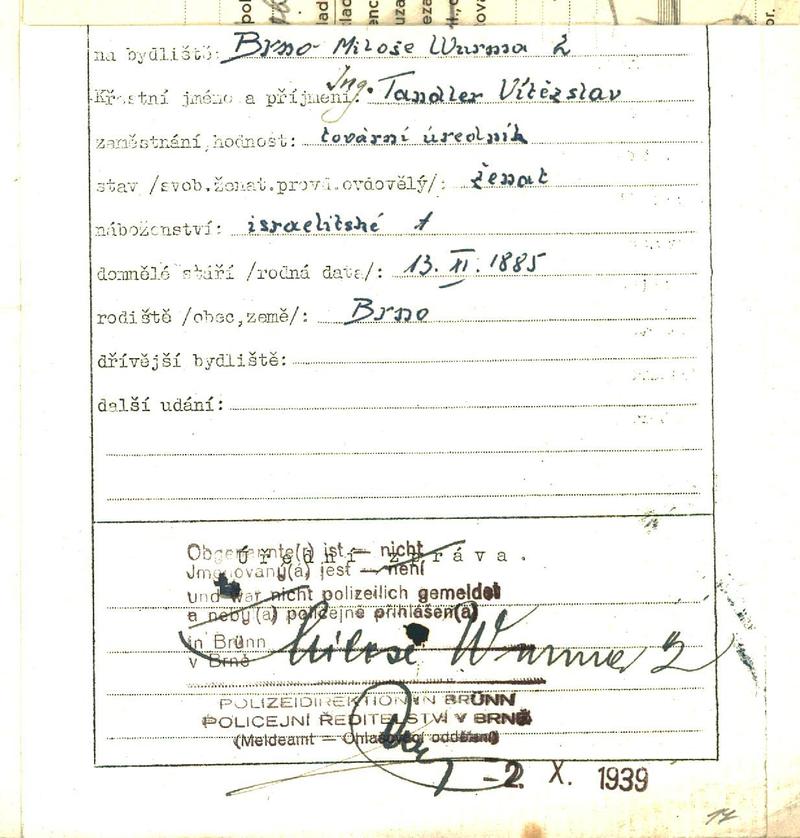 na bydliště: Brno - Miloše Wurma 2
Křestní jméno a příjmení: Ing. Tandler Vítězslav
zaměstnání, hodnost: tovární úředník
stav /svob.ženat.provd.ovdovělý/: ženat
náboženství: israelitské
domnělé stáří /rodná data/: 13. II. 1885
rodiště /obec,země/: Brno
dřívější bydliště:
další udání:
Úřední zpráva.
Obgenannte(r) ist — nicht
Jmenovaný(á) jest — není
und war nicht polizeilich gemeldet
a nebyl(a) policejně přihlášen(a)
in Brünn
v Brně
Miloše Wurma 2
POLIZEIDIREKTION IN BRÜNN
POLICEJNÍ ŘEDITELSTVÍ V BRNĚ
(Meldeamt — Ohlašovací oddělení)
-2. X. 1939